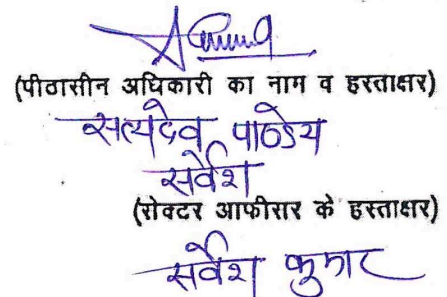 (पीठासीन अधिकारी का नाम व हस्ताक्षर)
सत्यदेव पाण्डेय
सर्वेश
(सेक्टर आफीसर के हस्ताक्षर)
सर्वेश कुमार